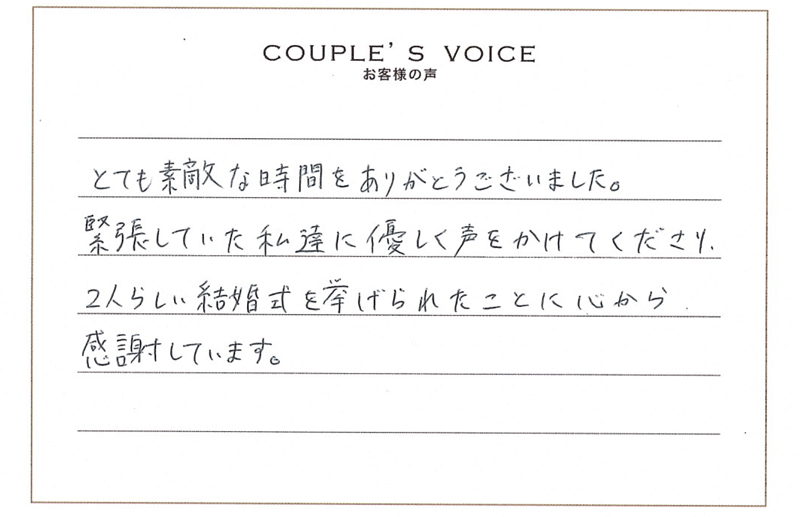 COUPLE'S VOICE
お客様の声
とても素敵な時間をありがとうございました。
緊張していた私達に優しく声をかけてくださり、
2人らしい結婚式を挙げられたことに心から
感謝しています。